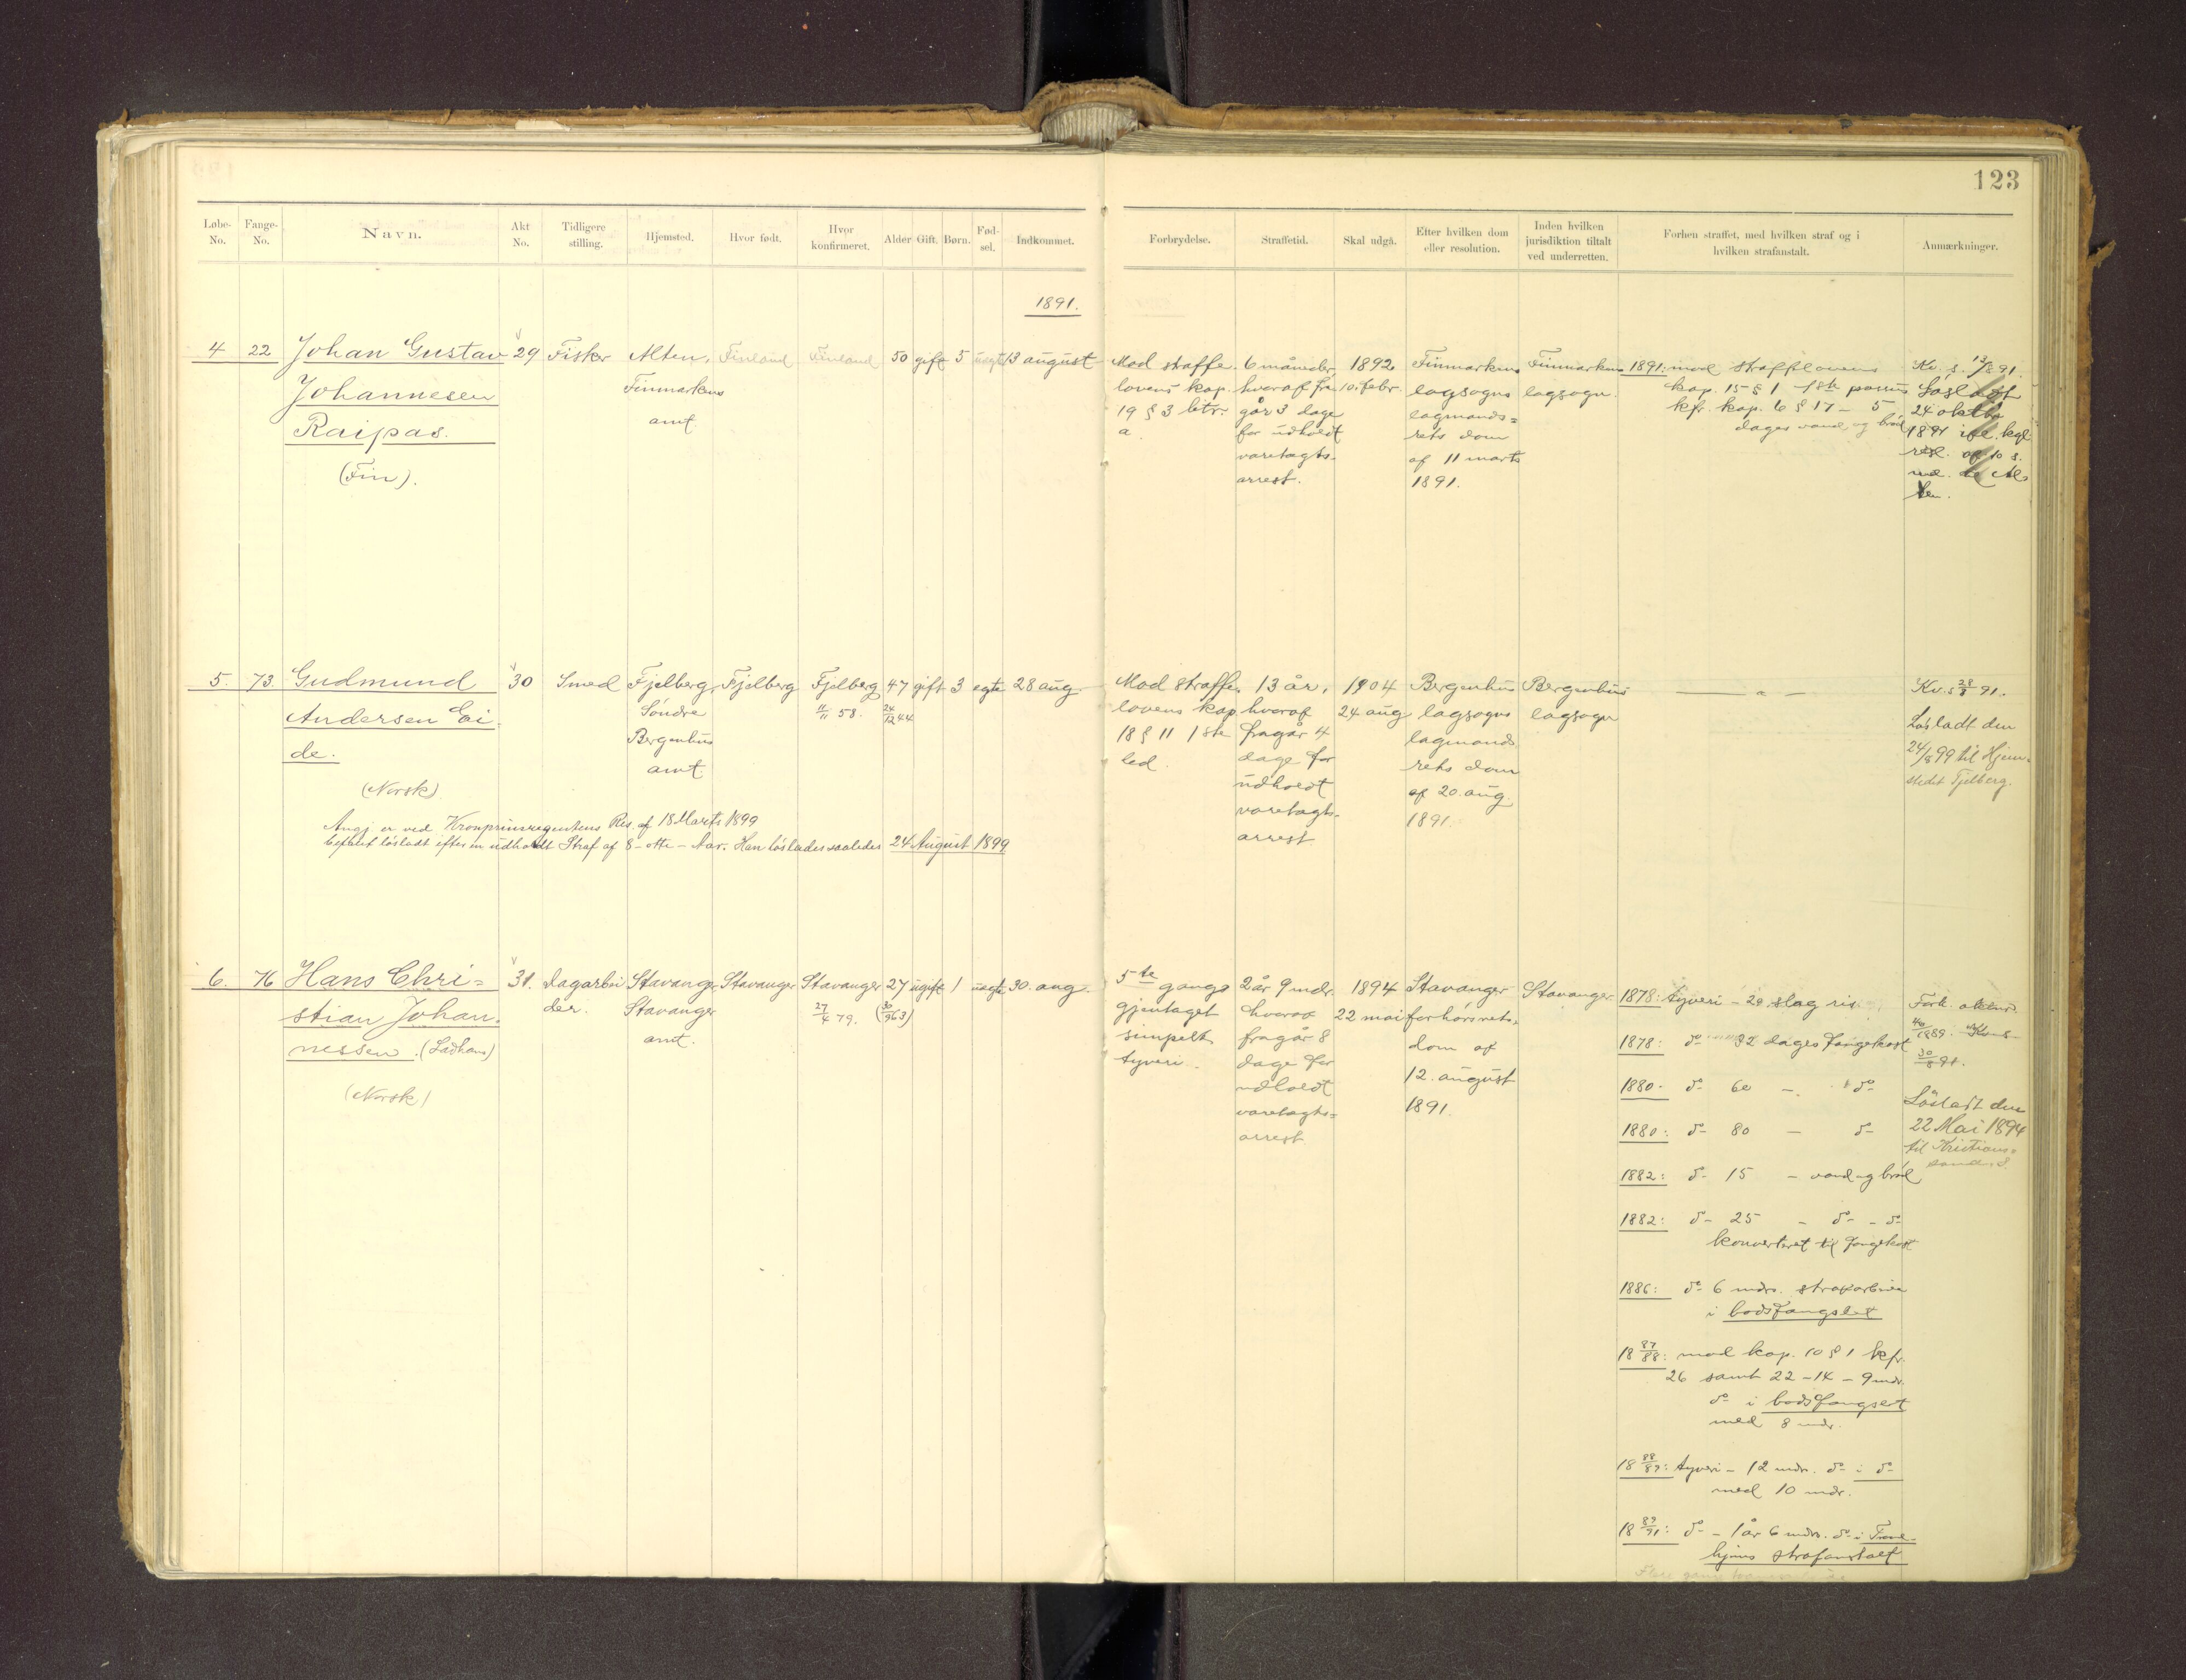 123
Løbe-No. Fange-No. Navn. Akt No. Tidligere stilling. Hjemsted. Hvor født. Hvor konfirmeret. Alder Gift. Børn. Fødsel. Indkommet. Forbrydelse. Straffetid. Skal udgå. Efter hvilken dom eller resolution. Inden hvilken jurisdiktion tiltalt ved underretten. Forhen straffet, med hvilken straf og i hvilken strafanstalt. Anmærkninger.
1891.
4 22 Johan Gustav 29 Fisker Alten, Finland Finland 50 gift 5 uegte 13 august
Johannesen Finmarkens
Raipas. amt
(Fin).
Mod straffe-
lovens kap.
19 § 3 litr.
a.
6 måneder,
hvoraf fra-
går 3 dage
for udholdt
varetægts-
arrest.
1892
10. febr.
Finmarkens
lagsogns
lagmands-
rets dom
af 11 marts
1891.
Finmarkens
lagsogn.
1891: mod straffelovens
kap. 15 § 1 - 1ste passus
kfr. kap. 6 § 17 - 5
dages vand og brød
Kv. s. 13/8 91.
Løsladt
24 oktbr
1891 ifl. kgl.
res. af 10 s.
md. til Al-
ten.
5. 73. Gudmund 30 Smed Fjelberg, Fjelberg Fjelberg 47 gift 3 egte 28 aug.
Andersen Ei- Søndre 11/11 58. 24/12 44
de. Bergenhus
amt.
(Norsk)
Angj er ved Kronprinsregentens Res. af 18 Marts 1899
befalet løsladt efter en udholdt Straf af 8 - otte - Aar. Han løslades saaledes 24 August 1899
Mod straffe-
lovens kap
18 § 11 1ste
led.
13 år,
hvoraf
fragår 4
dage for
udholdt
varetægts-
arrest
1904
24 aug
Bergenhus
lagsogns
lagmands
rets dom
af 20. aug.
1891.
Bergenhus
lagsogn
— " —
Kv. s 28/8 91.
Løsladt den
24/8 99 til Hjem-
stedet Fjelberg.
6. 76 Hans Chri- 31. dagarbei Stavanger, Stavanger Stavanger 27 ugift 1 uegte 30. aug.
stian Johan- der. Stavanger 27/4 79. (30/9 63)
nessen. (Ladhans) amt.
(Norsk)
5te gangs
gjentaget
simpelt
tyveri.
2 år 9 mdr.
hvoraf
fragår 8
dage for
udholdt
varetægts-
arrest
1894
22 mai
Stavanger
forhørsrets-
dom af
12. august
1891.
Stavanger
1878: tyveri - 20 slag ris.
1878: do 32 dages fangekost
1880. do 60 - do
1880: do 80 - do
1882: do 15 - vand og brød
1882: do 25 - do - do
konverteret til fangekost
1886: do 6 mdrs. strafarbeide
i bodsfængslet
18 87/88: mod kap. 10 § 1 kfr.
26 samt 22 - 14 - 9 mdr.
do i bodsfængslet
med 8 mdr.
18 88/89: tyveri - 12 mdr. do i do
med 10 mdr.
18 89/91: do - 1 år 6 mdrs. do i Trond-
hjems strafanstalt
Løsladt den
22 Mai 1894
til Kristian-
sand S.